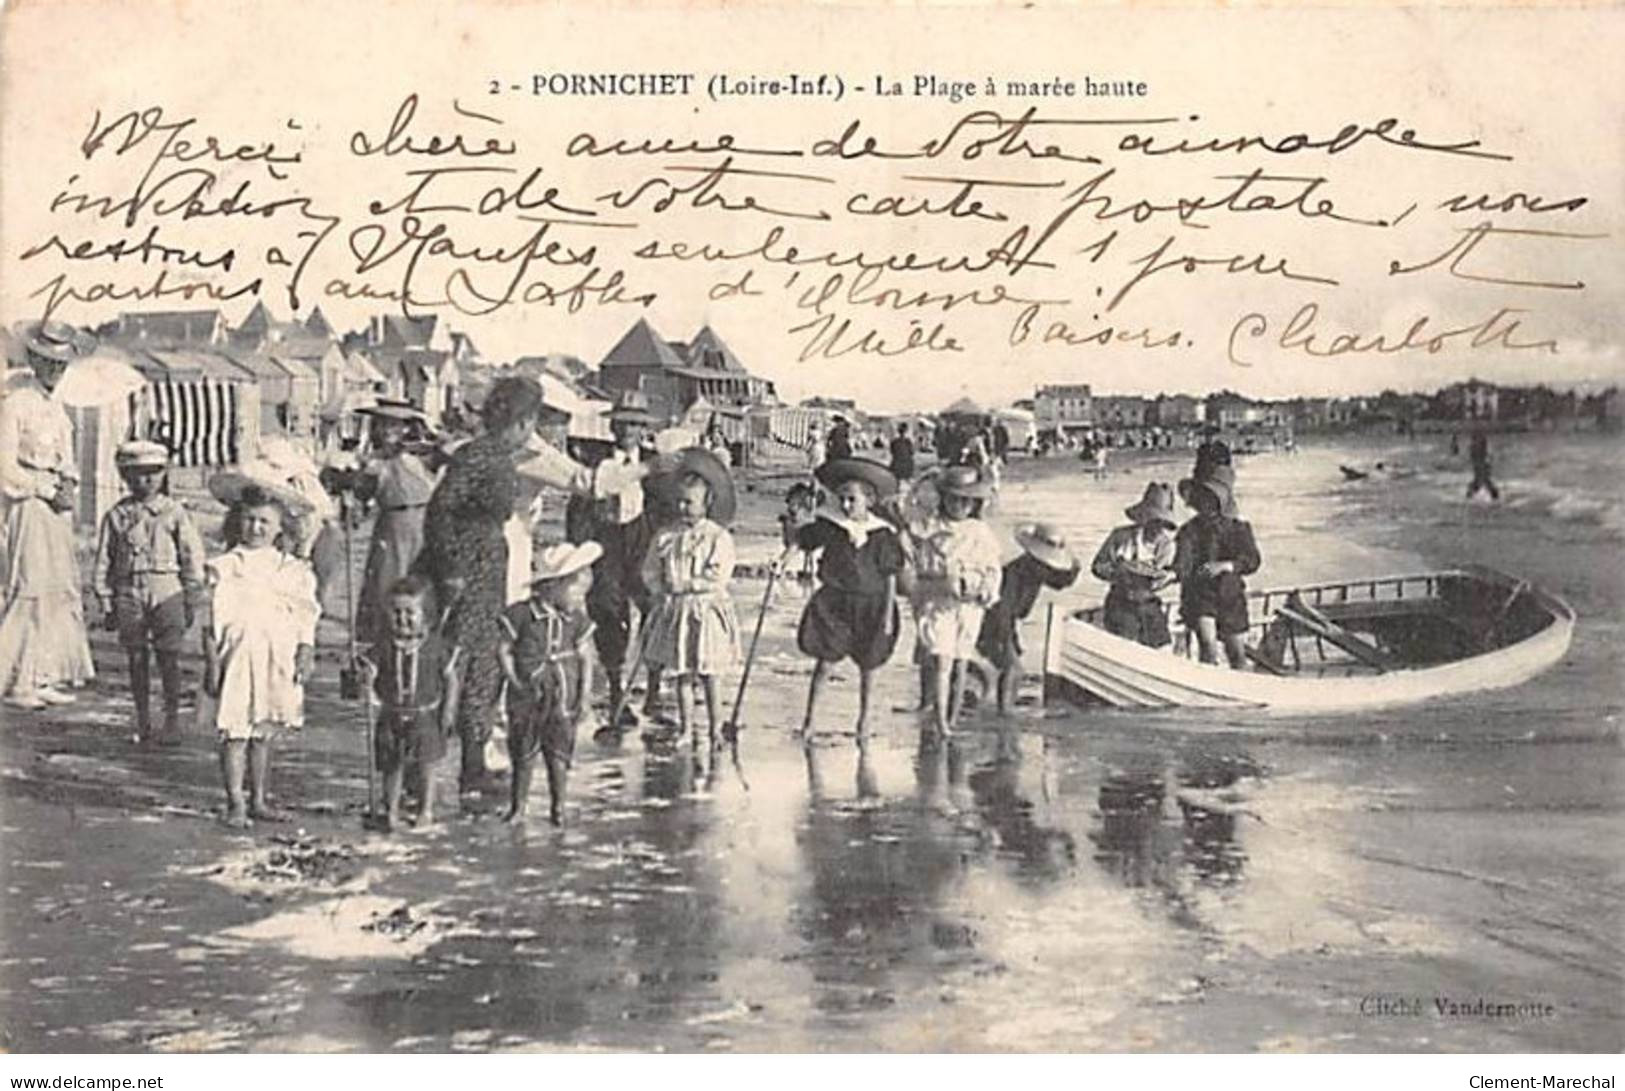 2 - PORNICHET (Loire-Inf.) - La Plage à marée haute
Merci chère amie de votre aimable
invitation et de votre carte postale, nous
restons à Nantes seulement 1 jour et
partons aux Sables d'Olonne.
Mille baisers. Charlotte
Cliché Vandernotte
www.delcampe.net
Clement-Marechal